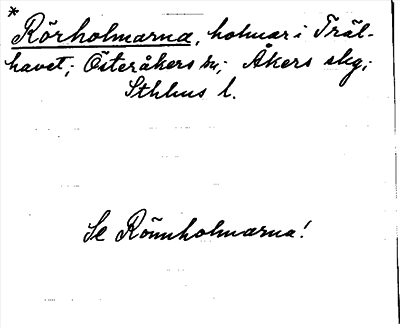 *
Rörholmarna, holmar i Träl-
havet; Österåkers sn; Åkers skg;
Sthlms l.
Se Rönnholmarna!